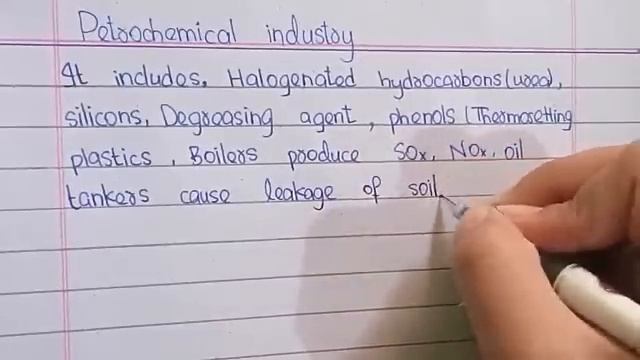 Petrochemical industry
It includes, Halogenated hydrocarbons (used),
silicons, Degreasing agent, phenols (Thermosetting
plastics, Boilers produce SOx, NOx, oil
tankers cause leakage of soil